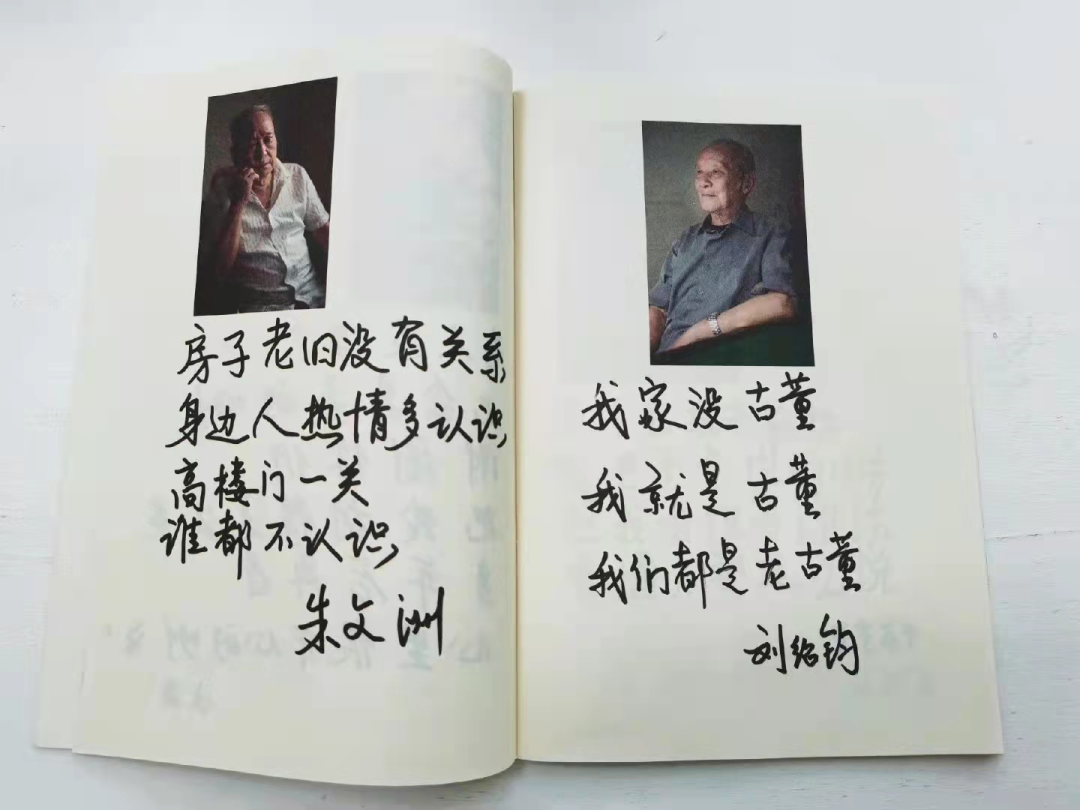 房子老旧没有关系
身边人热情多认识
高楼门一关
谁都不认识
朱文洲
我家没古董
我就是古董
我们都是老古董
刘绍钧